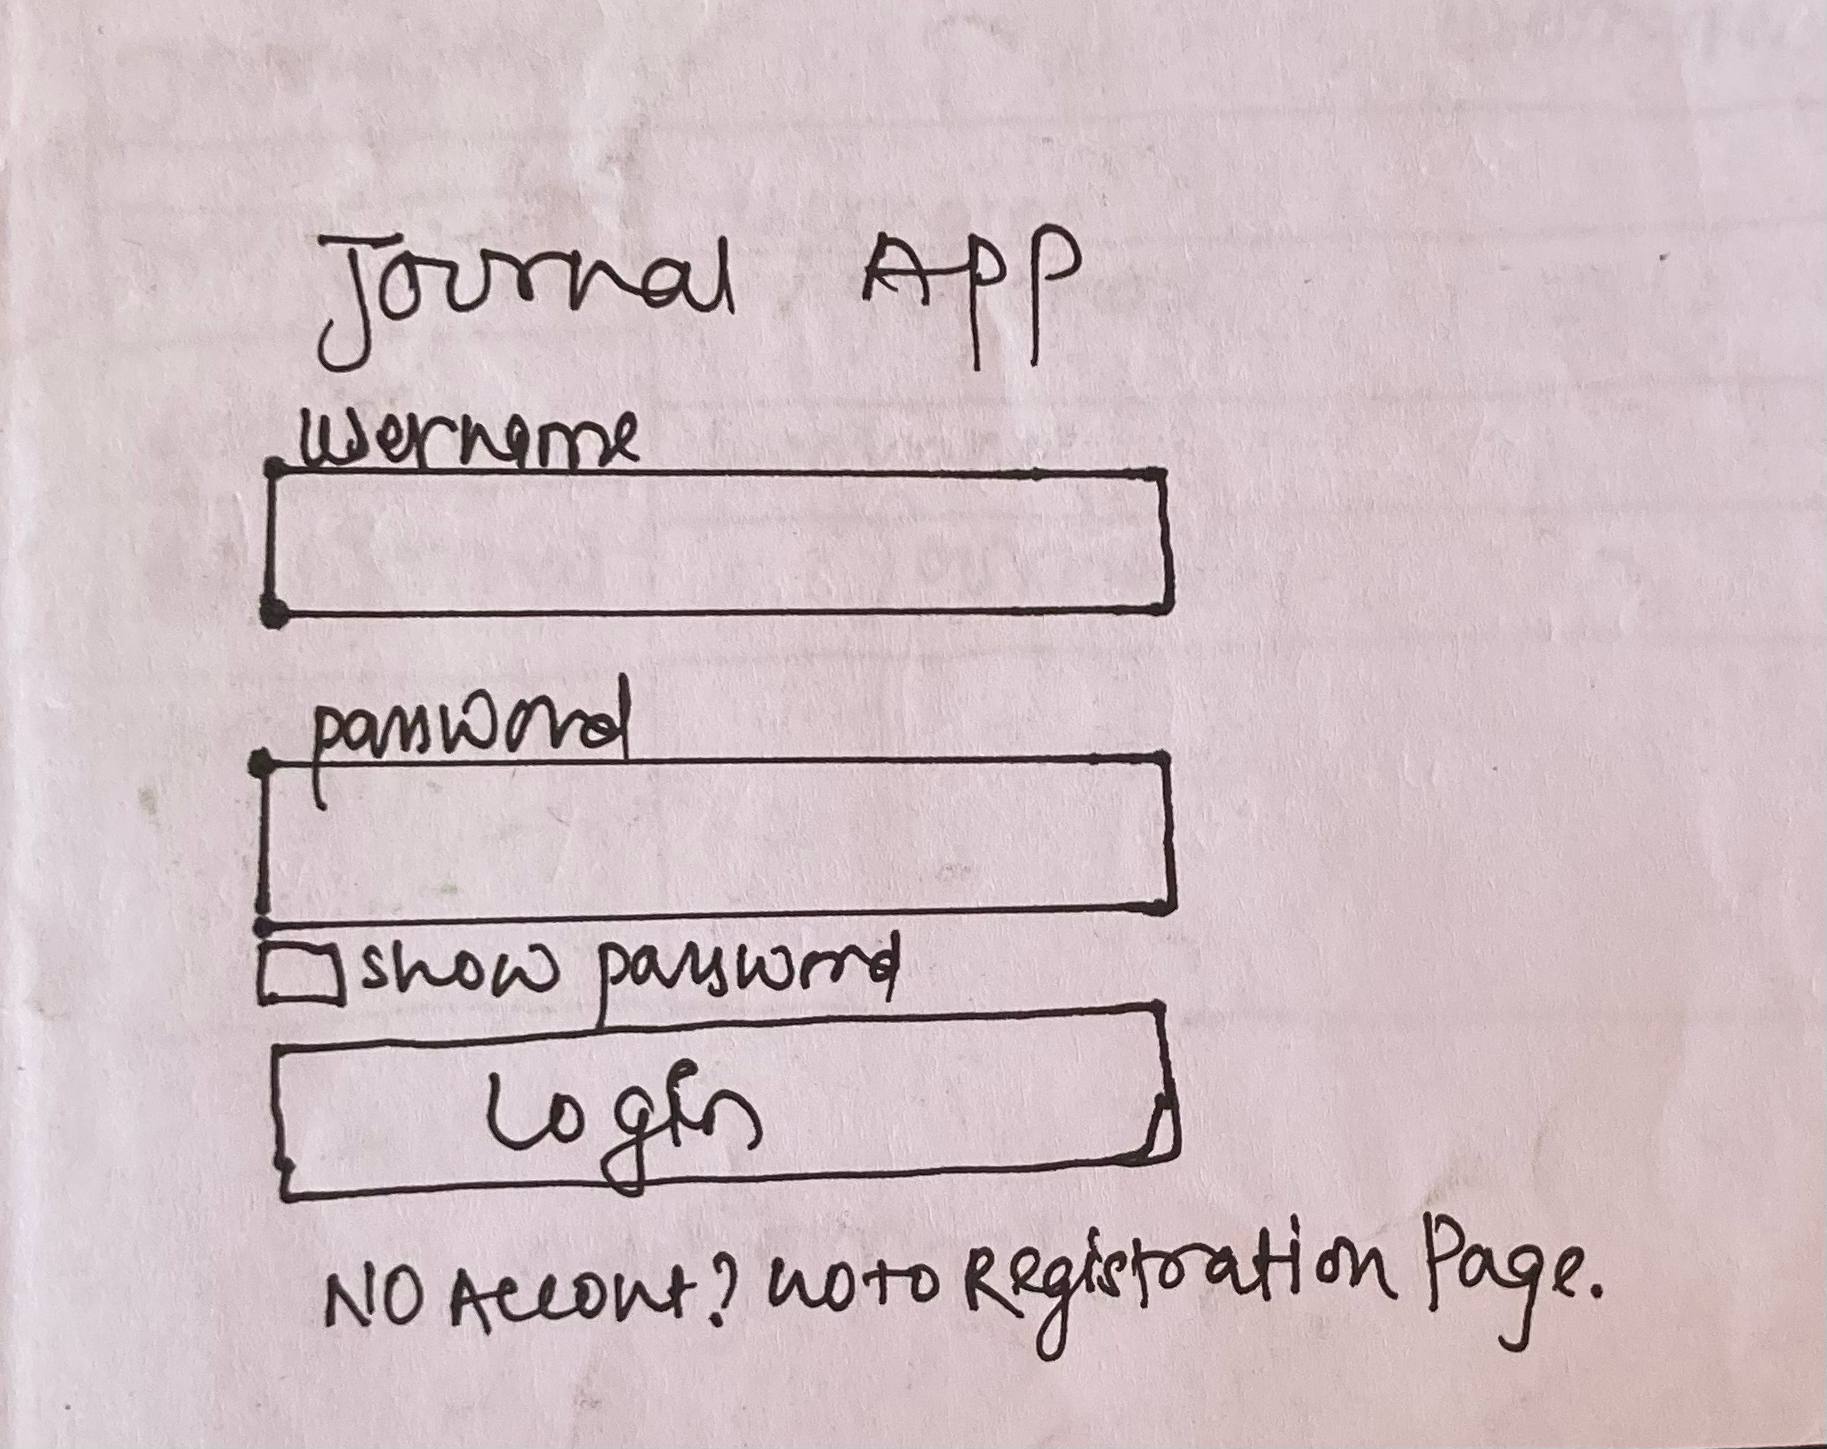 Journal App
username
password
show password
Login
NO Account? Goto Registration Page.